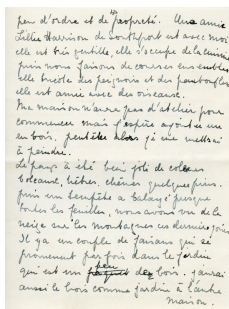 peu d'ordre et de propreté. Une amie
Lillie Harrison de Southport est avec moi
elle est très gentille, elle s'occupe de la cuisine
puis nous faisons de courses ensembles
elle tricote des peignoirs et des pantoufles
elle est amie avec des oiseaux.
Ma maison n'aura pas d'atelier pour
commencer mais j'espère ajouter un
en bois, peutêtre alors je me mettrai
à peindre.
Le pays a été bien joli de colores
boleaux, hêtres, chênes quelques pins.
puis un tempête a balayé presque
toutes les feuilles, nous avons vu de la
neige sur les montagnes ces derniers jours
Il y a un couple de faisans qui se
promenent parfois dans le jardin
qui est un peu de bois. j'aurai
aussi le bois comme jardin à l'autre
maison.